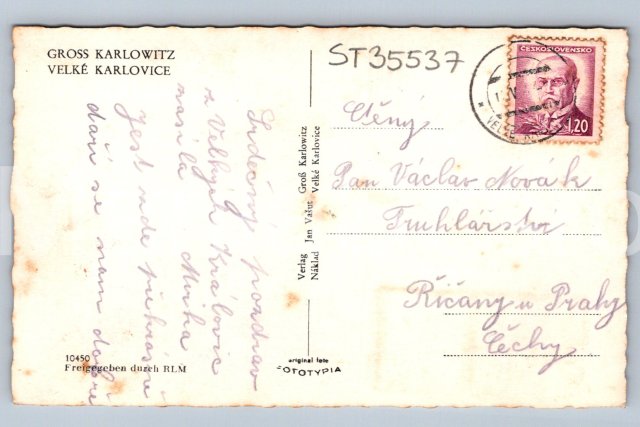 GROSS KARLOWITZ
VELKÉ KARLOVICE
ST35537
ČESKOSLOVENSKO
1.20
Srdečný pozdrav
z Velkých Králowic
zasílá Mirka
jest zde překrásně
daří se nám dobře
Verlag Jan Vašut Groß Karlowitz
Náklad Velké Karlovice
Ctěný
Pan Václav Novák
Truhlářství
Říčany u Prahy
Čechy
10450
Freigegeben durch RLM
original foto
FOTOTYPIA